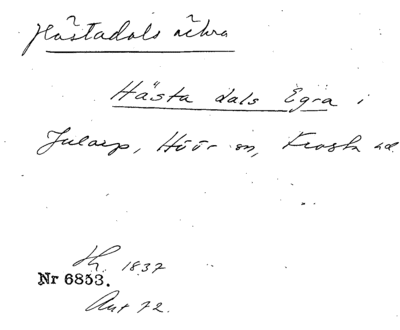 Hästadals åkra
Hästa dals Egra i
Jularp, Höör sn, Frosta hd.
Hg. 1837
Nr 6853.
Ant 72.